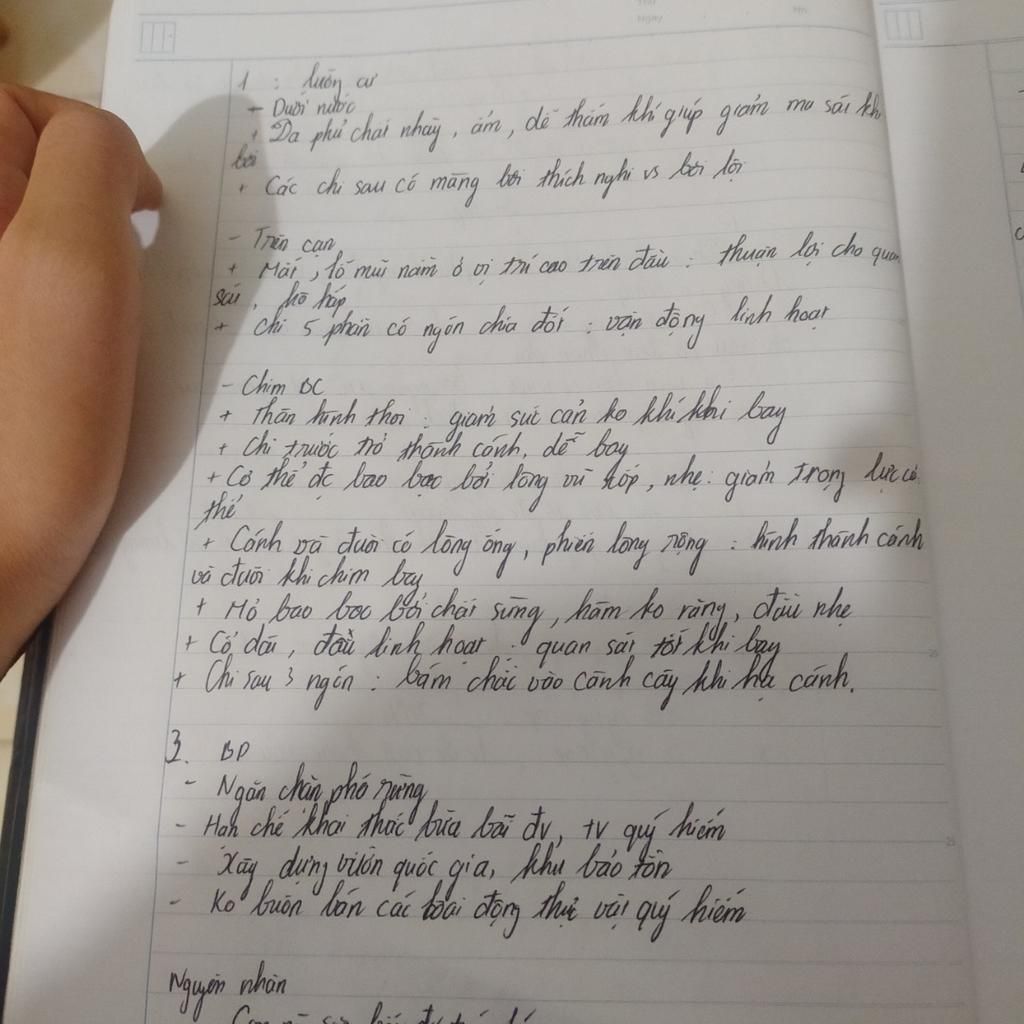 1 : lưỡng cư
- Dưới nước
+ Da phủ chất nhầy, ẩm, dễ thấm khí giúp giảm ma sát khi
bơi
+ Các chi sau có màng bơi thích nghi vs bơi lội
- Trên cạn
+ Mắt, lỗ mũi nằm ở vị trí cao trên đầu : thuận lợi cho quan
sát, hô hấp
+ Chi 5 phần có ngón chia đốt : vận động linh hoạt
- Chim BC
+ Thân hình thoi : giảm sức cản ko khí khi bay
+ Chi trước trở thành cánh, dễ bay
+ Cơ thể đc bao bọc bởi lông vũ xốp, nhẹ : giảm trọng lực cơ
thể
+ Cánh và đuôi có lông ống, phiến lông rộng : hình thành cánh
và đuôi khi chim bay
+ Mỏ bao bọc bởi chất sừng, hàm ko răng, đầu nhẹ
+ Cổ dài, đầu linh hoạt : quan sát tốt khi bay
+ Chi sau 3 ngón : bám chắc vào cành cây khi hạ cánh.
3. BP
- Ngăn chặn phá rừng
- Hạn chế khai thác bừa bãi đv, tv quý hiếm
- Xây dựng vườn quốc gia, khu bảo tồn
- Ko buôn bán các loài động thực vật quý hiếm
Nguyên nhân